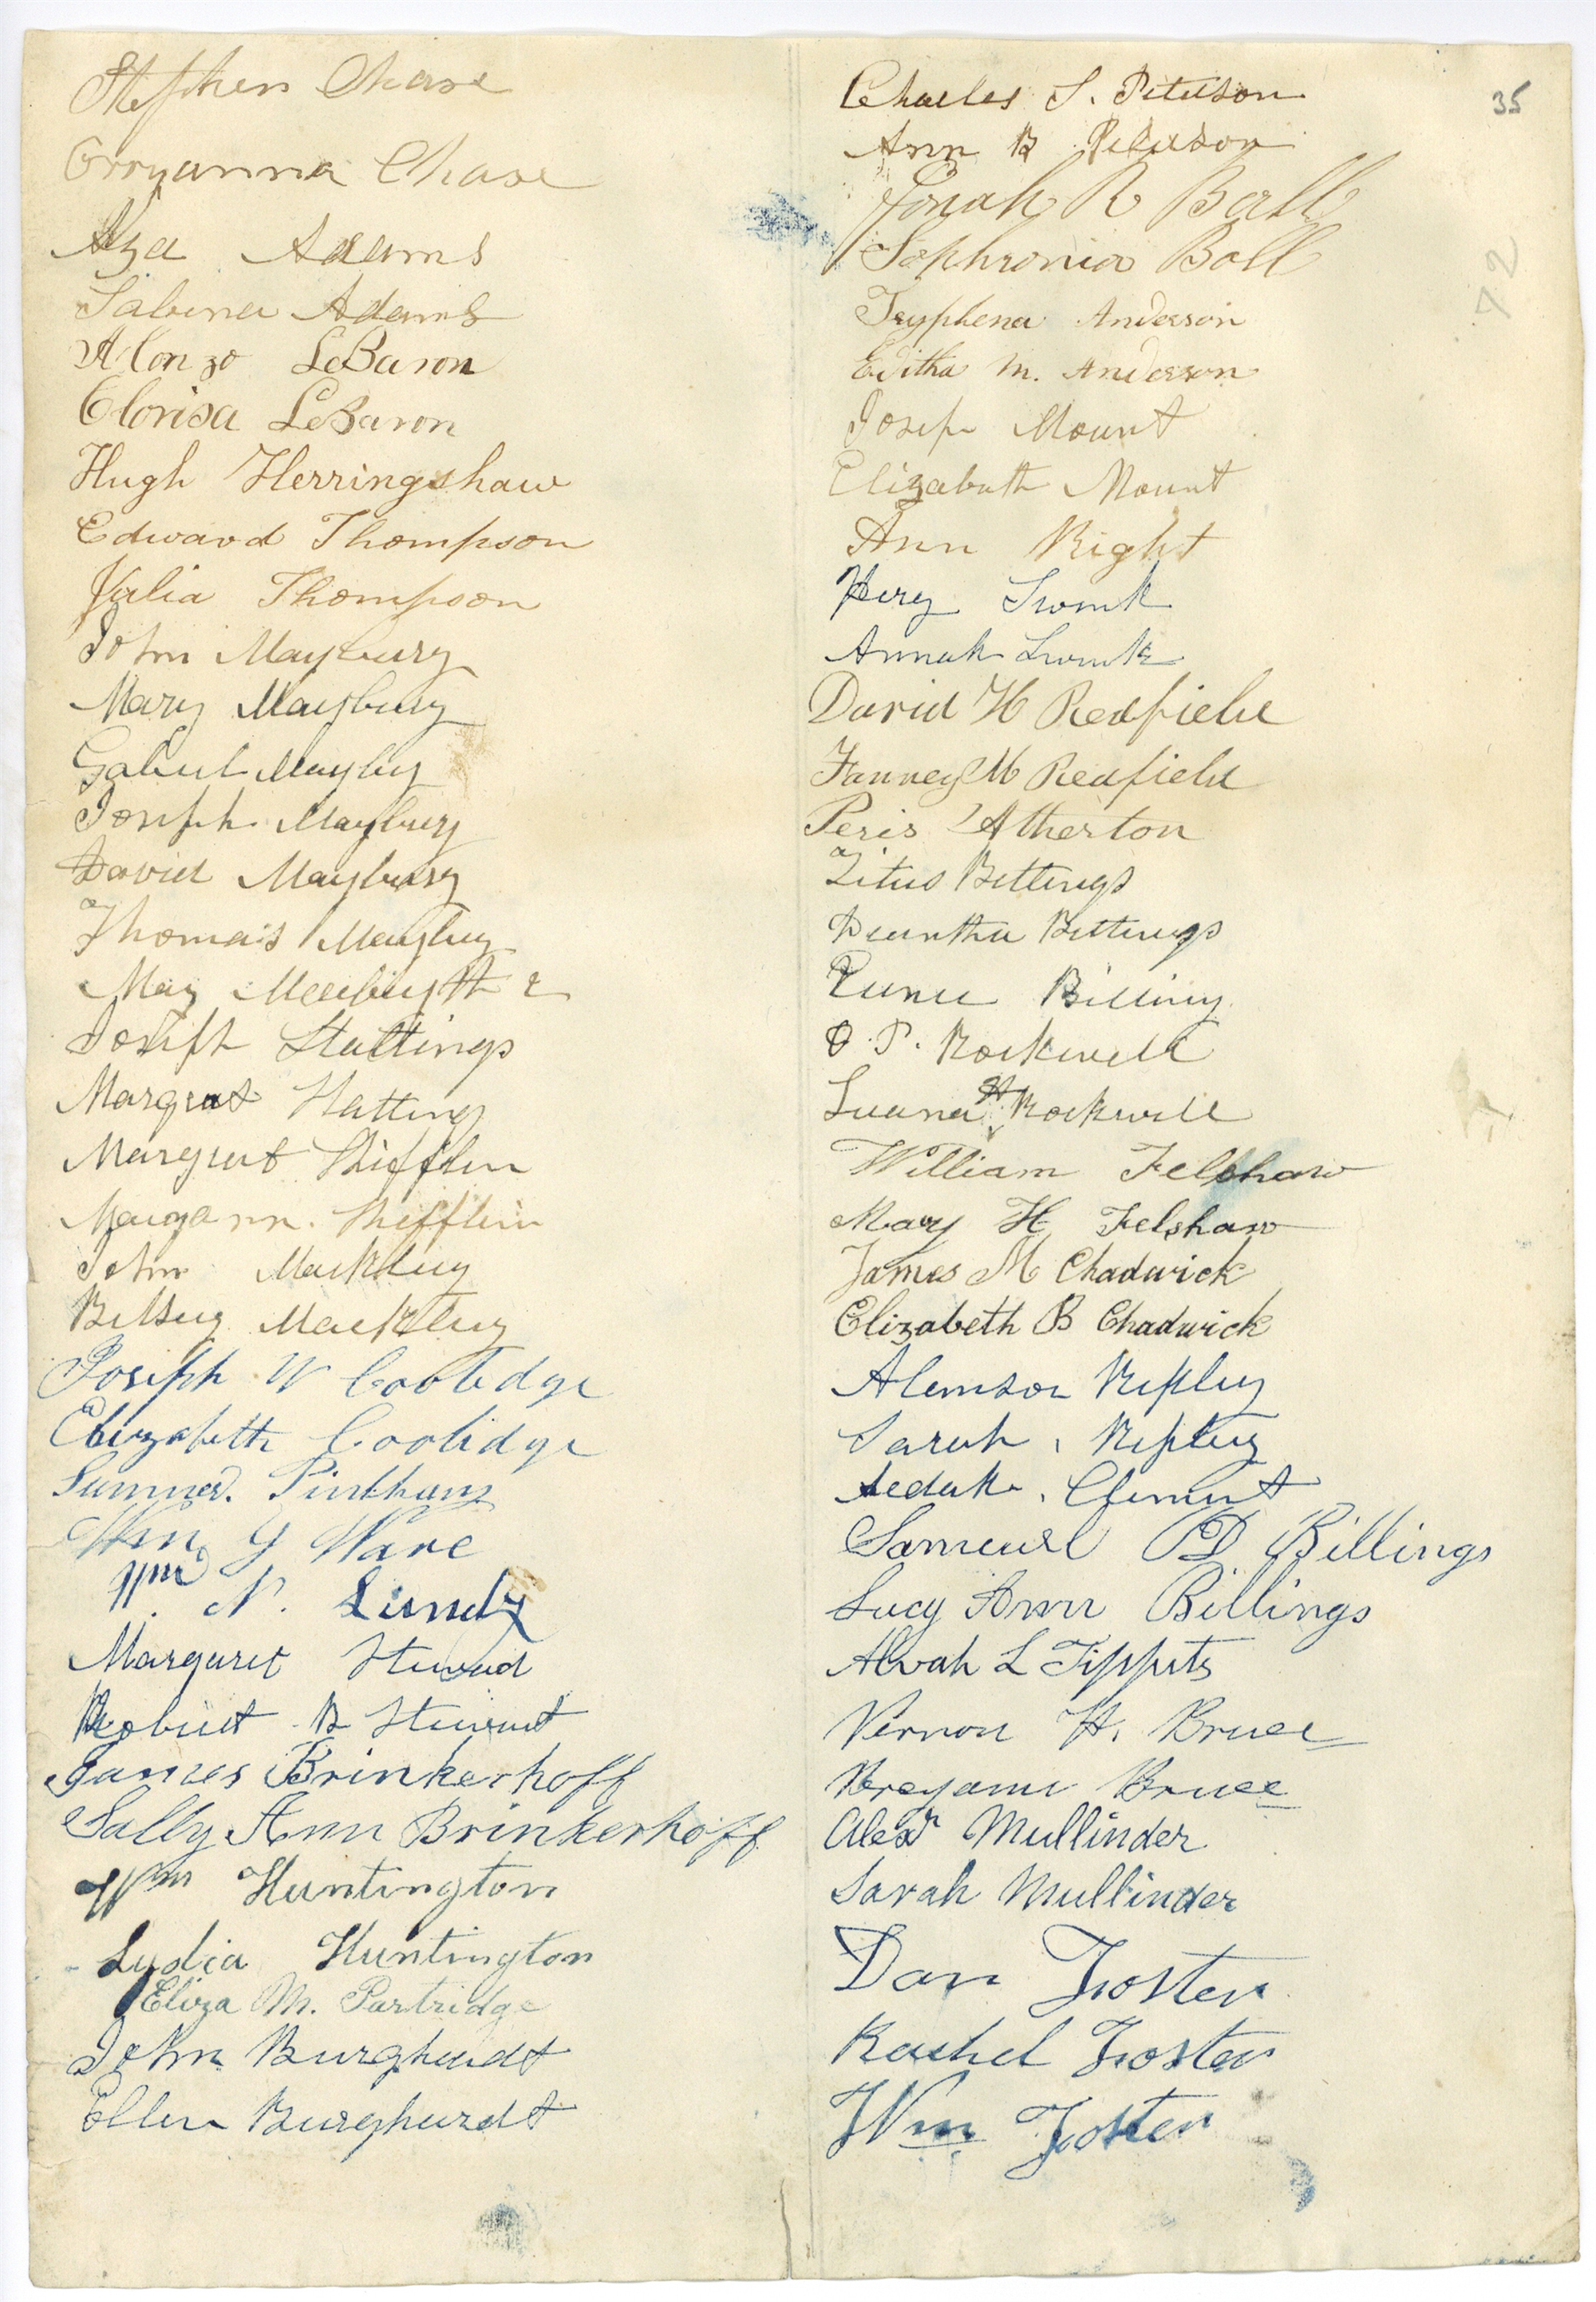 Stephen Chase
Orryanna Chase
Aza Adams
Sabina Adams
Alonzo LeBaron
Clorisa LeBaron
Hugh Herringshaw
Edward Thompson
Julia Thompson
John Maybury
Mary Maybury
Maybry
Joseph Maybury
David Maybury
Thomas Maybury
May
Joseph Stattings
Margret Hatting
Margret Shifflin
Shifflin
John
Betsey
Joseph W Coolidge
Elizabeth Coolidge
Sumner. Pinkham
Wm G Ware
Wm N. Lundy
Margaret Steward
Robert B Stewart
James Brinkerhoff
Sally Ann Brinkerhoff
Wm Huntington
Lydia Huntington
Eliza M. Partridge
John Burghardt
Ellen Burghardt
35
72
Charles S. Peterson
Ann B Peterson
Jonah R Ball
Sophronia Ball
Tryphena Anderson
Editha M. Anderson
Joseph Mount
Elizabeth Mount
Ann Right
Annah
David H Redfield
Fanney M Redfield
Peris Atherton
Titus Billings
Billings
Eunice Billing
O. P. Rockwell
Luana H Rockwell
William Felshaw
Mary H Felshaw
James M Chadwick
Elizabeth B Chadwick
Alanson Ripley
Sarah Ripley
Clement
Sameuel PD Billings
Lucy Ann Billings
Alvah L Tippets
Vernon H. Bruce
Bruce
Alexr Mullinder
Sarah Mullinder
Dan Foster
Rachel Foster
Wm Foster